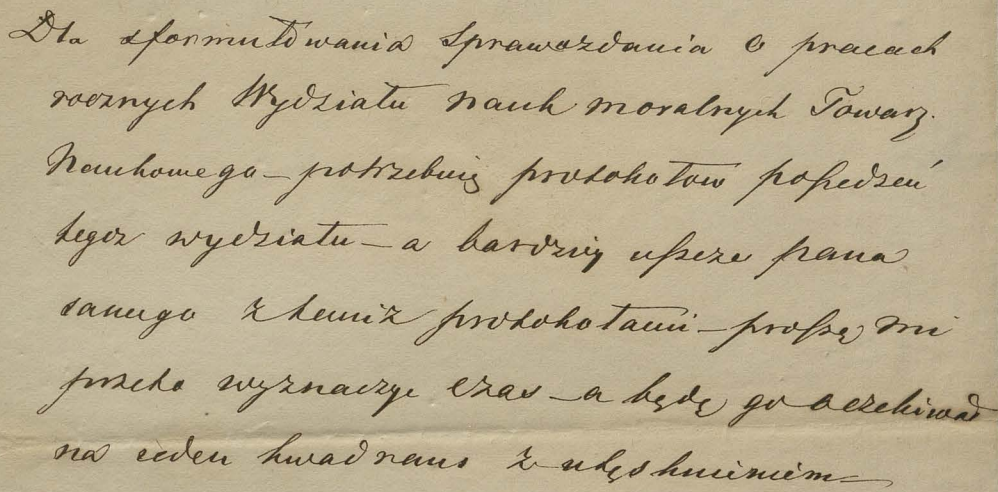 Dla sformułowania Sprawozdania o pracach
rocznych Wydziału nauk moralnych Towarz.
Naukowego – potrzebuię protokołow posiedzeń
tegoż wydziału – a bardziey ieszcze pana
samego z temiż protokołami – proszę mi
przeto wyznaczyć czas – a będę go oczekiwał
na ieden kwadrans z utęsknieniem –